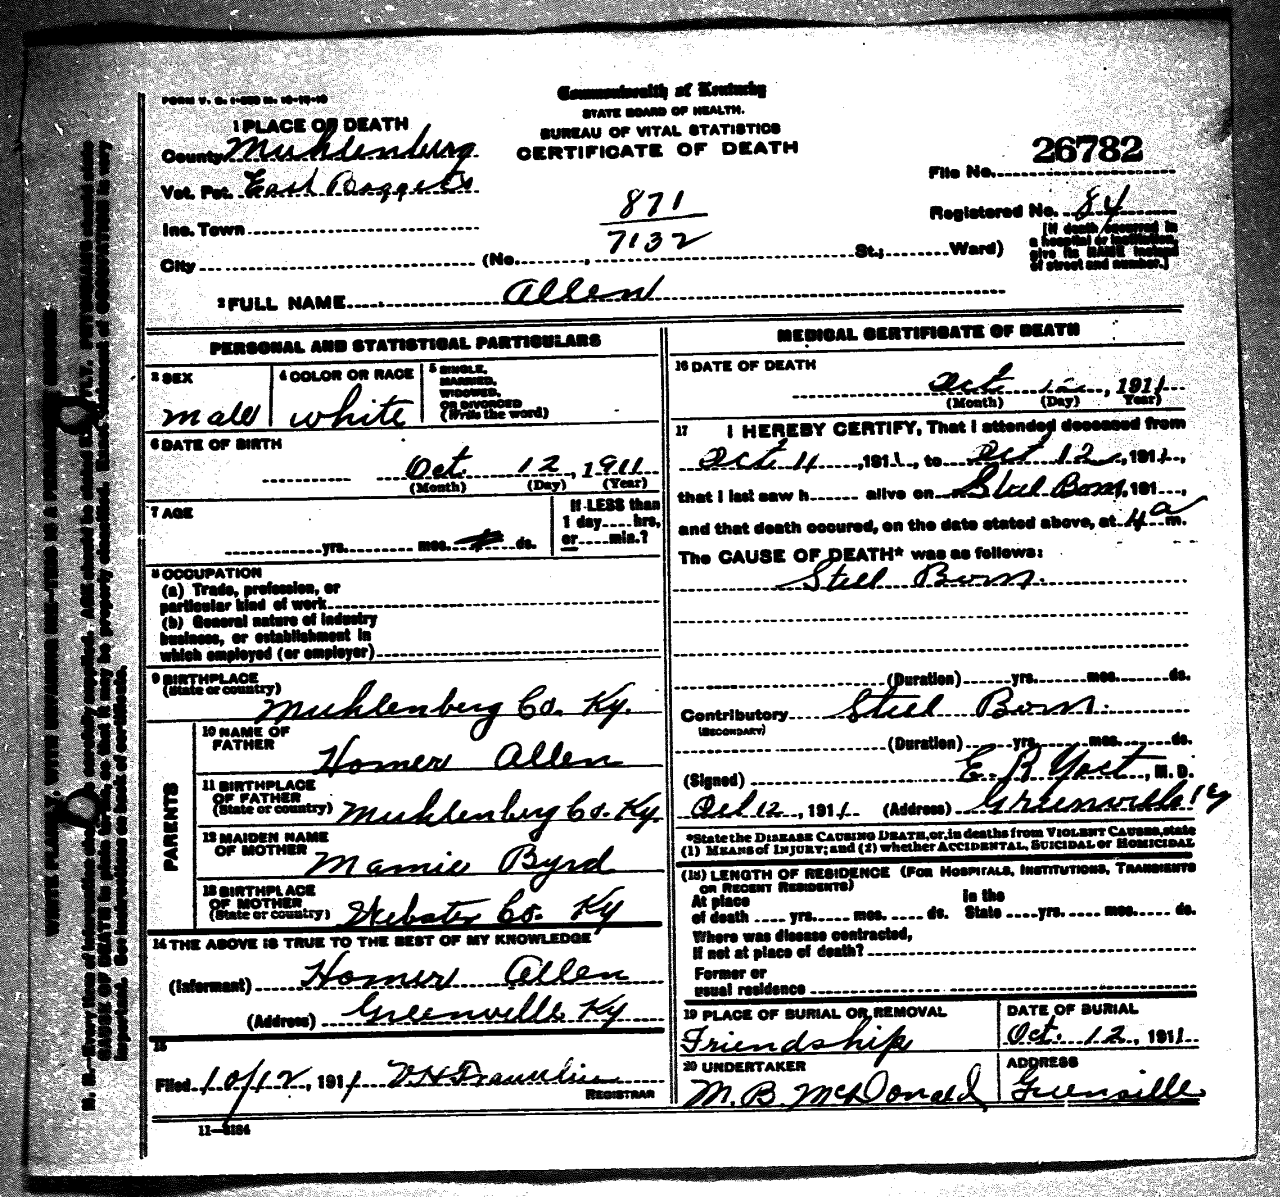 Commonwealth of Kentucky
STATE BOARD OF HEALTH.
BUREAU OF VITAL STATISTICS
CERTIFICATE OF DEATH
1 PLACE OF DEATH
County Muhlenburg
Vot. Pct. East Baggetts
Inc. Town
City (No. , St.; Ward)
871
7132
File No. 26782
Registered No. 84
[If death occurred in
a hospital or institution,
give its NAME instead
of street and number.]
2 FULL NAME Allen
PERSONAL AND STATISTICAL PARTICULARS
3 SEX
male
4 COLOR OR RACE
white
5 SINGLE,
MARRIED,
WIDOWED,
OR DIVORCED
(Write the word)
6 DATE OF BIRTH
Oct. 12, 1911
(Month) (Day) (Year)
7 AGE
yrs. mos. ds.
If LESS than
1 day hrs.
or min.?
8 OCCUPATION
(a) Trade, profession, or
particular kind of work
(b) General nature of industry
business, or establishment in
which employed (or employer)
9 BIRTHPLACE
(State or country)
Muhlenberg Co. Ky.
PARENTS
10 NAME OF
FATHER
Homer Allen
11 BIRTHPLACE
OF FATHER
(State or country) Muhlenberg Co. Ky.
12 MAIDEN NAME
OF MOTHER
Mamie Byrd
13 BIRTHPLACE
OF MOTHER
(State or country) Webster Co. Ky
14 THE ABOVE IS TRUE TO THE BEST OF MY KNOWLEDGE
(Informant) Homer Allen
(Address) Greenville Ky
15
Filed 10/12, 1911
REGISTRAR
11-3184
MEDICAL CERTIFICATE OF DEATH
16 DATE OF DEATH
Oct 12, 1911
(Month) (Day) Year)
17 I HEREBY CERTIFY, That I attended deceased from
Oct 11, 1911, to Oct 12, 1911,
that I last saw h alive on Still Born, 191 ,
and that death occured, on the date stated above, at 4 a m.
The CAUSE OF DEATH* was as follows:
Still Born.
(Duration) yrs. mos. ds.
Contributory Still Born.
(SECONDARY)
(Duration) yrs. mos. ds.
(Signed) E. R. Yost, M. D.
Oct 12, 1911 (Address) Greenville Ky
*State the DISEASE CAUSING DEATH, or, in deaths from VIOLENT CAUSES, state
(1) MEANS of INJURY; and (2) whether ACCIDENTAL, SUICIDAL or HOMICIDAL
(18) LENGTH OF RESIDENCE (FOR HOSPITALS, INSTITUTIONS, TRANSIENTS
OR RECENT RESIDENTS)
At place in the
of death yrs. mos. ds. State yrs. mos. ds.
Where was disease contracted,
If not at place of death?
Former or
usual residence
19 PLACE OF BURIAL OR REMOVAL
Friendship
DATE OF BURIAL
Oct. 12, 1911
20 UNDERTAKER
M. B. McDonald
ADDRESS
Greenville